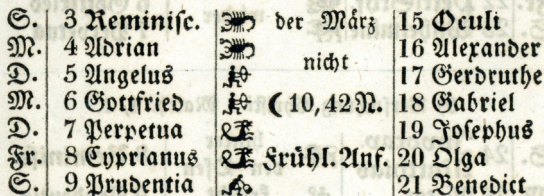 S. 3 Reminisc. der März 15 Oculi
M. 4 Adrian 16 Alexander
D. 5 Angelus nicht 17 Gerdruthe
M. 6 Gottfried ☾ 10,42 N. 18 Gabriel
D. 7 Perpetua 19 Josephus
Fr. 8 Cyprianus Frühl. Anf. 20 Olga
S. 9 Prudentia 21 Benedict